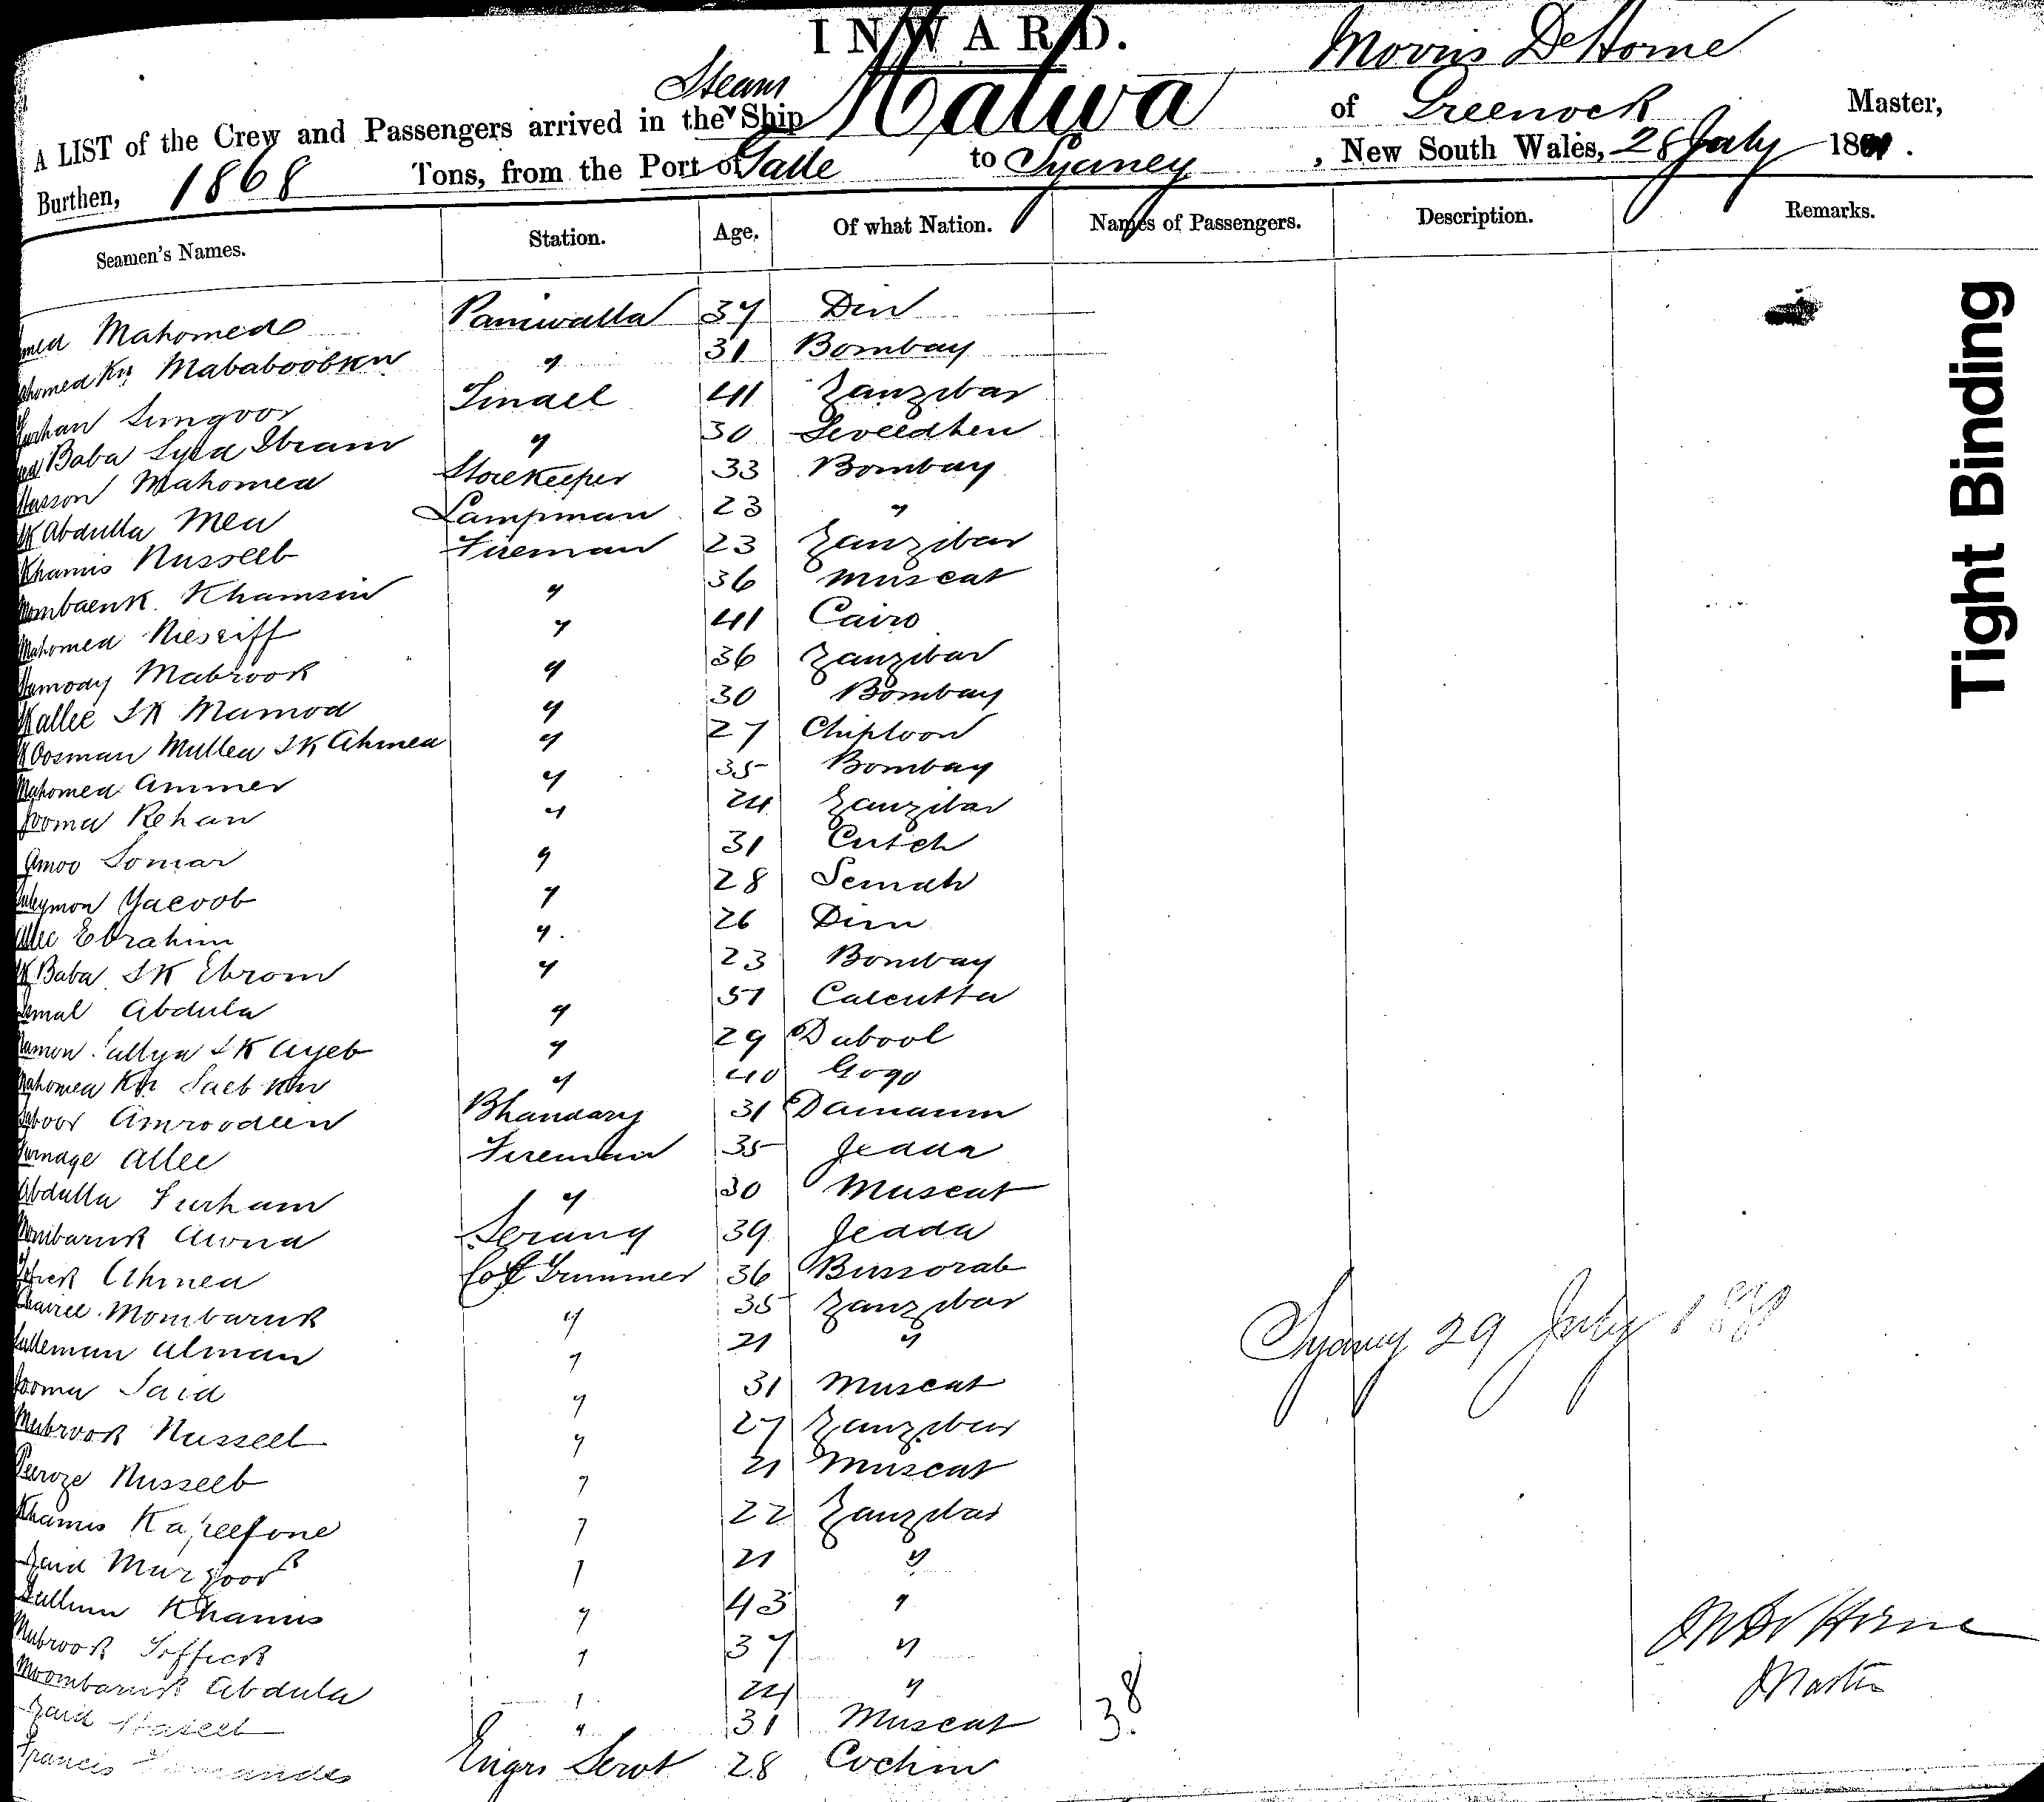 INWARD.
Morris DeHorne
A LIST of the Crew and Passengers arrived in the Steam Ship Malwa of Greenock Master,
Burthen, 1868 Tons, from the Port of Galle to Sydney, New South Wales, 28 July 18
Seamen's Names. Station. Age. Of what Nation. Names of Passengers. Description. Remarks.
Mahomed Paniwalla 37 Diu
Mababoobkn " 31 Bombay
Sungoor Tindel 41 Zanzibar
Baba Syed Ibram " 30
Hasson Mahomed Storekeeper 33 Bombay
SK Abdulla Mea Lampman 23 "
Khamis Nusseeb Fireman 23 Zanzibar
Mombaenk Khamsin " 36 Muscat
Mahomed " 41 Cairo
Hamody Mabrook " 36 Zanzibar
Kallee SK Mamod " 30 Bombay
Oosman Mullea SK Ahmed " 27 Chiploon
Mahomed Ammer " 35 Bombay
Jooma Rehan " 24 Zanzibar
Amoo Somar " 31 Cutch
Suleymon Yacoob " 28 Semah
Allee Ebrahim " 26 Diu
SK Baba SK Ebrom " 23 Bombay
Jemal Abdula " 51 Calcutta
SK Ayeb " 29 Dabool
Mahomed Kn Saeb Kn " 40 Gogo
Amroodeen Bhandary 31 Damaun
Allee Fireman 35 Jedda
Abdulla Furham " 30 Muscat
Mombaruk Serang 39 Jedda
Ahmed Col Trimmer 36 Bussorah
Mombaruk " 35 Zanzibar
Sulleman Alman " 21 "
Jooma Said " 31 Muscat
Mubrook Nusseeb " 27 Zanzibar
Feeroze Nusseeb " 21 Muscat
Khamis " 22 Zanzibar
Zaid Murzook " 21 "
Sullum Khamis " 43 "
Mubrook Toffick " 37 "
Moombaruk Abdula " 24 "
Zaid " 31 Muscat
Francis Fernandes Engrs Servt 28 Cochin
38
Sydney 29 July 18
M De Horne
Master
Tight Binding